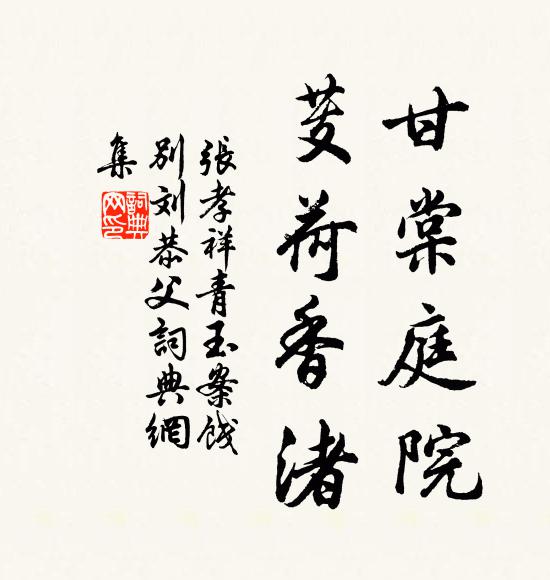 甘棠庭院
芰荷香渚
張孝祥青玉案餞
別刘恭父詞典網
集
詞典網印